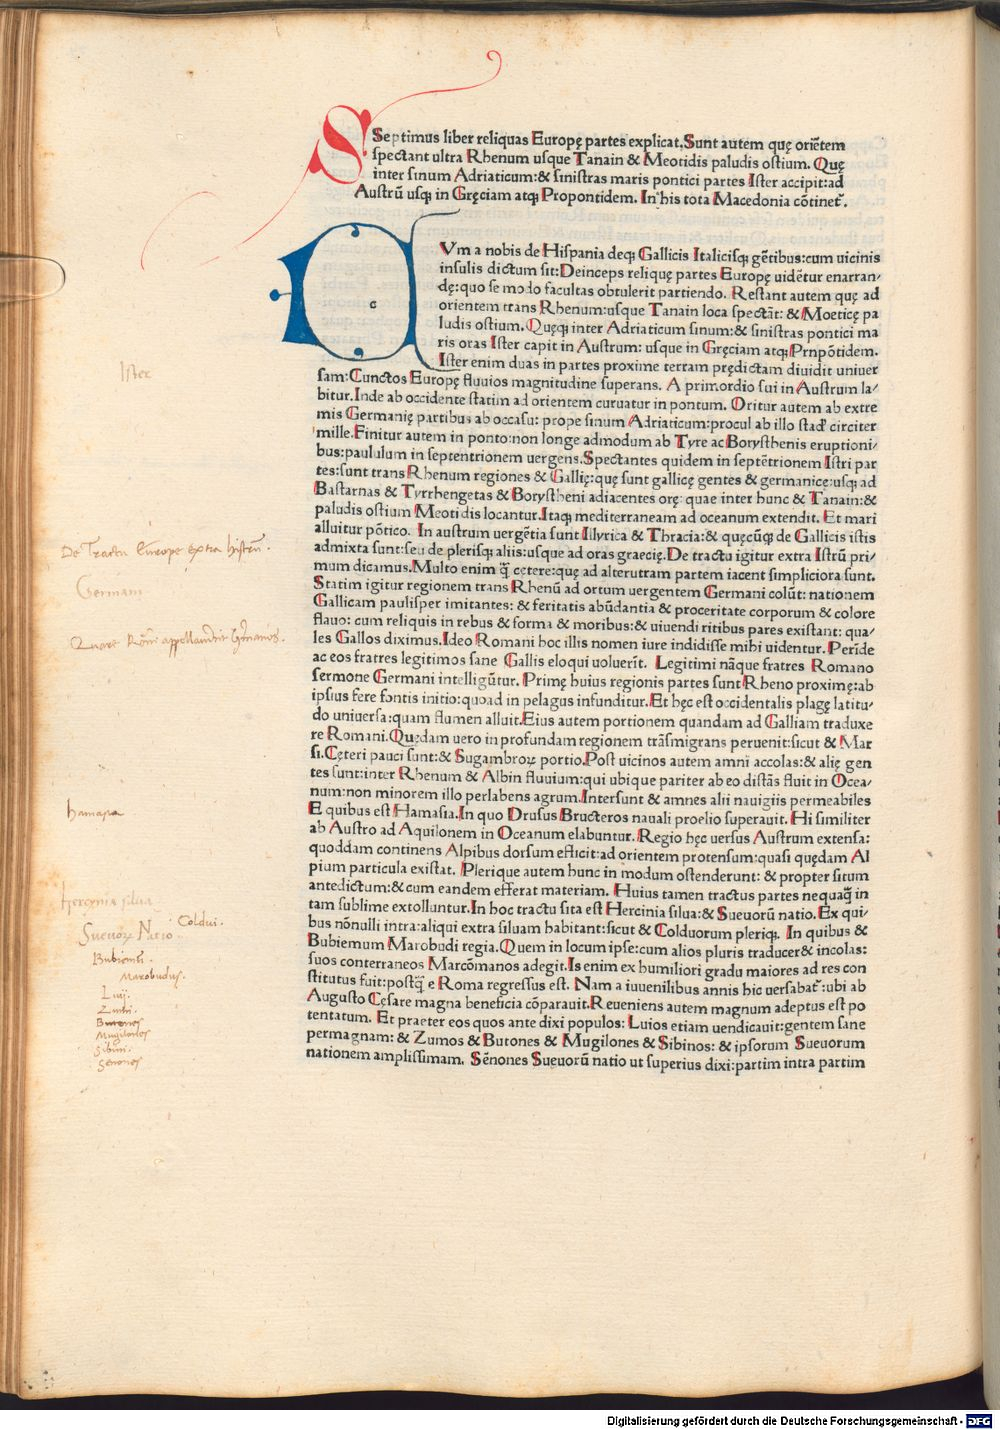 Septimus liber reliquas Europę partes explicat. Sunt autem quę oriẽtem
spectant ultra Rhenum usque Tanain & Meotidis paludis ostium. Quę
inter sinum Adriaticum: & sinistras maris pontici partes Ister accipit: ad
Austrũ usq; in Gręciam atq; Propontidem. In his tota Macedonia cõtinet᷑.
CVm a nobis de Hispania deq; Gallicis Italicisq; gẽtibus: cum uicinis
insulis dictum sit: Deinceps reliquę partes Europę uidẽtur enarran-
dę: quo se modo facultas obtulerit partiendo. Restant autem quę ad
orientem trans Rhenum: usque Tanain loca spectãt: & Moeticę pa
ludis ostium. Quęq; inter Adriaticum sinum: & sinistras pontici ma
ris oras Ister capit in Austrum: usque in Gręciam atq; Prnpõtidem.
Ister enim duas in partes proxime terram prędictam diuidit uniuer
sam: Cunctos Europę fluuios magnitudine superans. A primordio sui in Austrum la-
bitur. Inde ab occidente statim ad orientem curuatur in pontum. Oritur autem ab extre
mis Germanię partibus ab occasu: prope sinum Adriaticum: procul ab illo stad' circiter
mille. Finitur autem in ponto: non longe admodum ab Tyre ac Borysthenis eruptioni-
bus: paululum in septentrionem uergens. Spectantes quidem in septẽtrionem Istri par
tes: sunt trans Rhenum regiones & Gallię: quę sunt gallicę gentes & germanicę: usq; ad
Bastarnas & Tyrrhengetas & Borystheni adiacentes orę: quae inter hunc & Tanain: &
paludis ostium Meotidis locantur. Itaq; mediterraneam ad oceanum extendit. Et mari
alluitur põtico. In austrum uergẽtia sunt Illyrica & Thracia: & quęcũq; de Gallicis istis
admixta sunt: seu de plerisq; aliis: usque ad oras graecię. De tractu igitur extra Istrũ pri-
mum dicamus. Multo enim q̃ cętere: quę ad alterutram partem iacent simpliciora sunt.
Statim igitur regionem trans Rhenũ ad ortum uergentem Germani colũt: nationem
Gallicam paulisper imitantes: & feritatis abũdantia & proceritate corporum & colore
flauo: cum reliquis in rebus & forma & moribus: & uiuendi ritibus pares existant: qua-
les Gallos diximus. Ideo Romani hoc illis nomen iure indidisse mihi uidentur. Perĩde
ac eos fratres legitimos sane Gallis eloqui uoluerĩt. Legitimi nãque fratres Romano
sermone Germani intelligũtur. Primę huius regionis partes sunt Rheno proximę: ab
ipsius fere fontis initio: quoad in pelagus infunditur. Et hęc est occidentalis plagę latitu-
do uniuersa: quam flumen alluit. Eius autem portionem quandam ad Galliam traduxe
re Romani. Quędam uero in profundam regionem trãsmigrans peruenit: sicut & Mar
si. Cęteri pauci sunt: & Sugambroꝝ portio. Post uicinos autem amni accolas: & alię gen
tes sunt: inter Rhenum & Albin fluuium: qui ubique pariter ab eo distãs fluit in Ocea-
num: non minorem illo perlabens agrum. Intersunt & amnes alii nauigiis permeabiles
E quibus est Hamasia. In quo Drusus Bructeros nauali proelio superauit. Hi similiter
ab Austro ad Aquilonem in Oceanum elabuntur. Regio hęc uersus Austrum extensa:
quoddam continens Alpibus dorsum efficit: ad orientem protensum: quasi quędam Al
pium particula existat. Plerique autem hunc in modum ostenderunt: & propter situm
antedictum: & cum eandem efferat materiam. Huius tamen tractus partes nequaq̃ in
tam sublime extolluntur. In hoc tractu sita est Hercinia silua: & Sueuorũ natio. Ex qui-
bus nõnulli intra: aliqui extra siluam habitant: sicut & Colduorum pleriq;. In quibus &
Bubiemum Marobudi regia. Quem in locum ipse: cum alios pluris traducer& incolas:
suos conterraneos Marcõmanos adegit. Is enim ex humiliori gradu maiores ad res con
stitutus fuit: postq̃ e Roma regressus est. Nam a iuuenilibus annis hic uersabat᷑: ubi ab
Augusto Cęsare magna beneficia cõparauit. Reueniens autem magnum adeptus est po
tentatum. Et praeter eos quos ante dixi populos: Luios etiam uendicauit: gentem sane
permagnam: & Zumos & Butones & Mugilones & Sibinos: & ipsorum Sueuorum
nationem amplissimam. Sẽnones Sueuorũ natio ut superius dixi: partim intra partim
Ister
De Tractu Europe extra histrũ.
Germani
Quare Romani appellauerint Germanos.
hamasia
hercynia silua
Sueuoꝝ Natio
Coldui.
Bubiemũ.
Marobudus.
Luij.
Zumi.
Butones
Mugilones
Sibini.
Senones
Digitalisierung gefördert durch die Deutsche Forschungsgemeinschaft - DFG